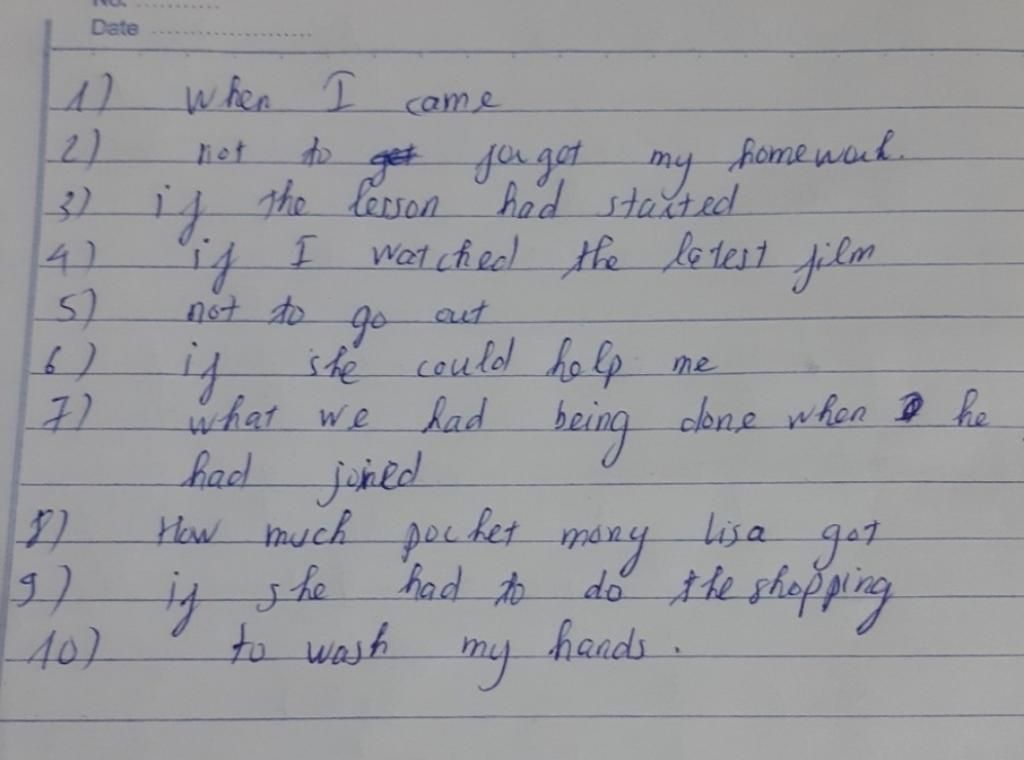 No. ............
Date ........................
1) When I came
2) not to get forgot my homework.
3) if the lesson had started
4) if I watched the latest film
5) not to go out
6) if she could help me
7) what we had being done when he
had joined
8) How much pocket mony lisa got
9) if she had to do the shopping
10) to wash my hands.